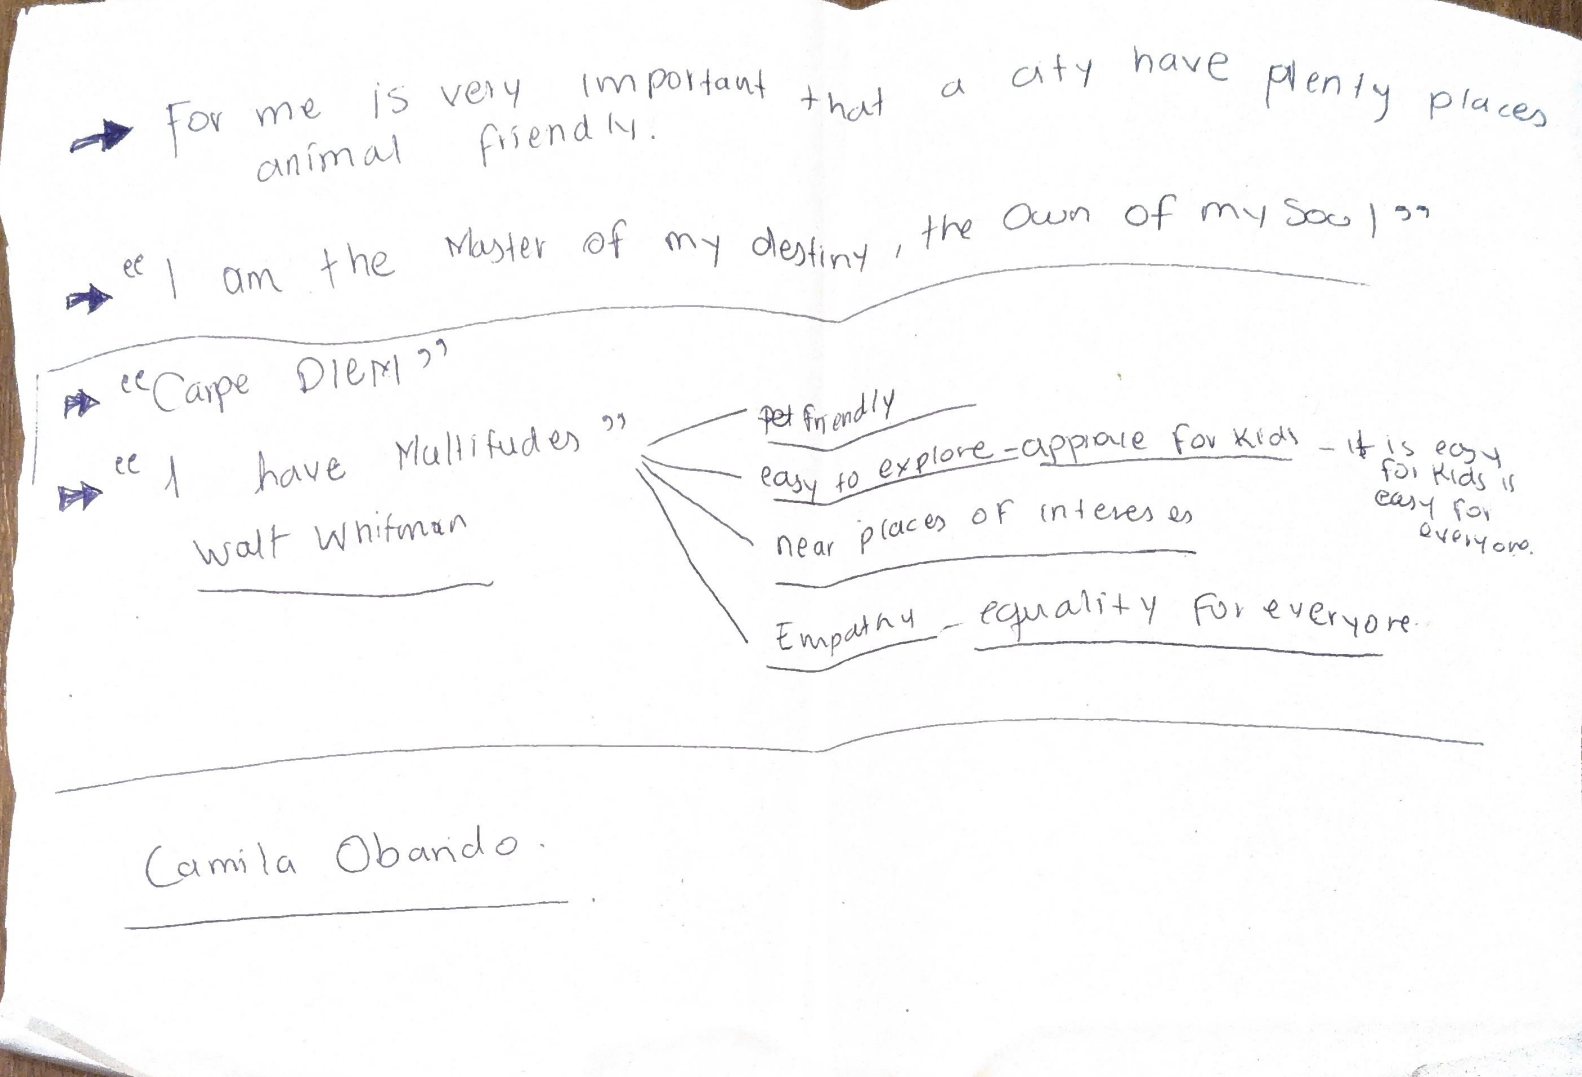 For me is very important that a city have plenty places
animal friendly.
"I am the Master of my destiny, the Own of my Soul"
"Carpe DIEM"
"I have Multitudes"
Walt Whitman
pet friendly
easy to explore - appriate for kids - if is easy
for kids is
easy for
everyone.
near places of intereses
Empathy - equality for everyone.
Camila Obando.